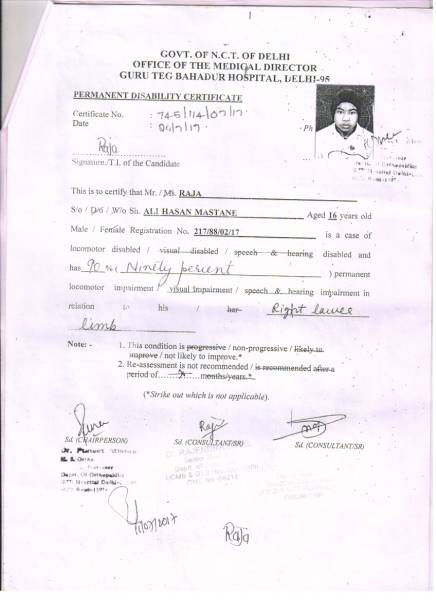 GOVT. OF N.C.T. OF DELHI
OFFICE OF THE MEDICAL DIRECTOR
GURU TEG BAHADUR HOSPITAL, DELHI-95
PERMANENT DISABILITY CERTIFICATE
Certificate No. : 745/114/07/17
Date :
Ph
Raja
Signature./T.I. of the Candidate
This is to certify that Mr. / Ms. RAJA
S/o / D/o / W/o Sh. ALI HASAN MASTANE Aged 16 years old
Male / Female Registration No. 217/88/02/17 is a case of
locomotor disabled / visual disabled / speech & hearing disabled and
has 90 % ( Ninety percent ) permanent
locomotor impairment / visual impairment / speech & hearing impairment in
relation to his / her Right lower
limb
Note: - 1. This condition is progressive / non-progressive / likely to
improve / not likely to improve.*
2. Re-assessment is not recommended / is recommended after a
period of months/years.*
(*Strike out which is not applicable).
Sd. (CHAIRPERSON) Sd. (CONSULTANT/SR) Sd. (CONSULTANT/SR)
Raja